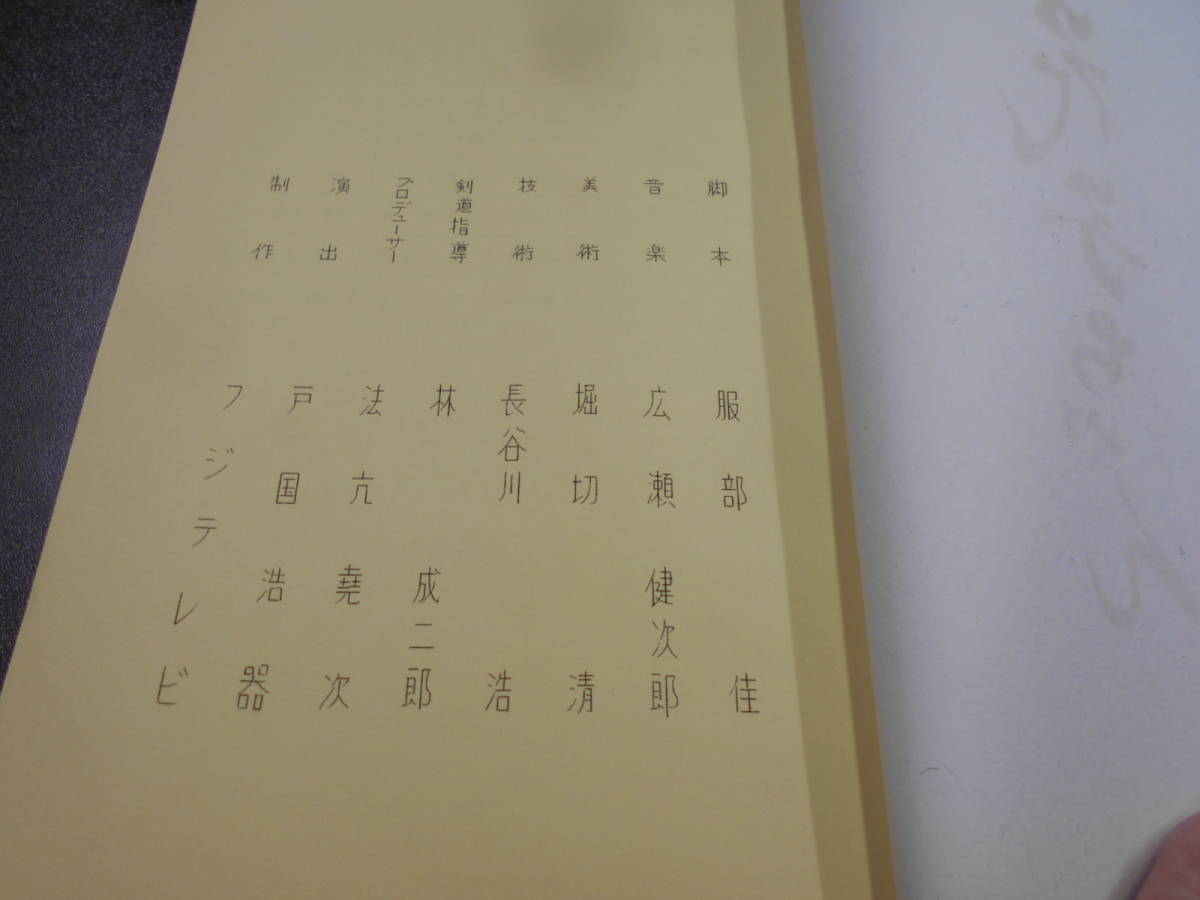 脚本 服部佳
音楽 広瀬健次郎
美術 堀切清
技術 長谷川浩
剣道指導 林成二郎
プロデューサー 法亢堯次
演出 戸国浩器
制作 フジテレビ